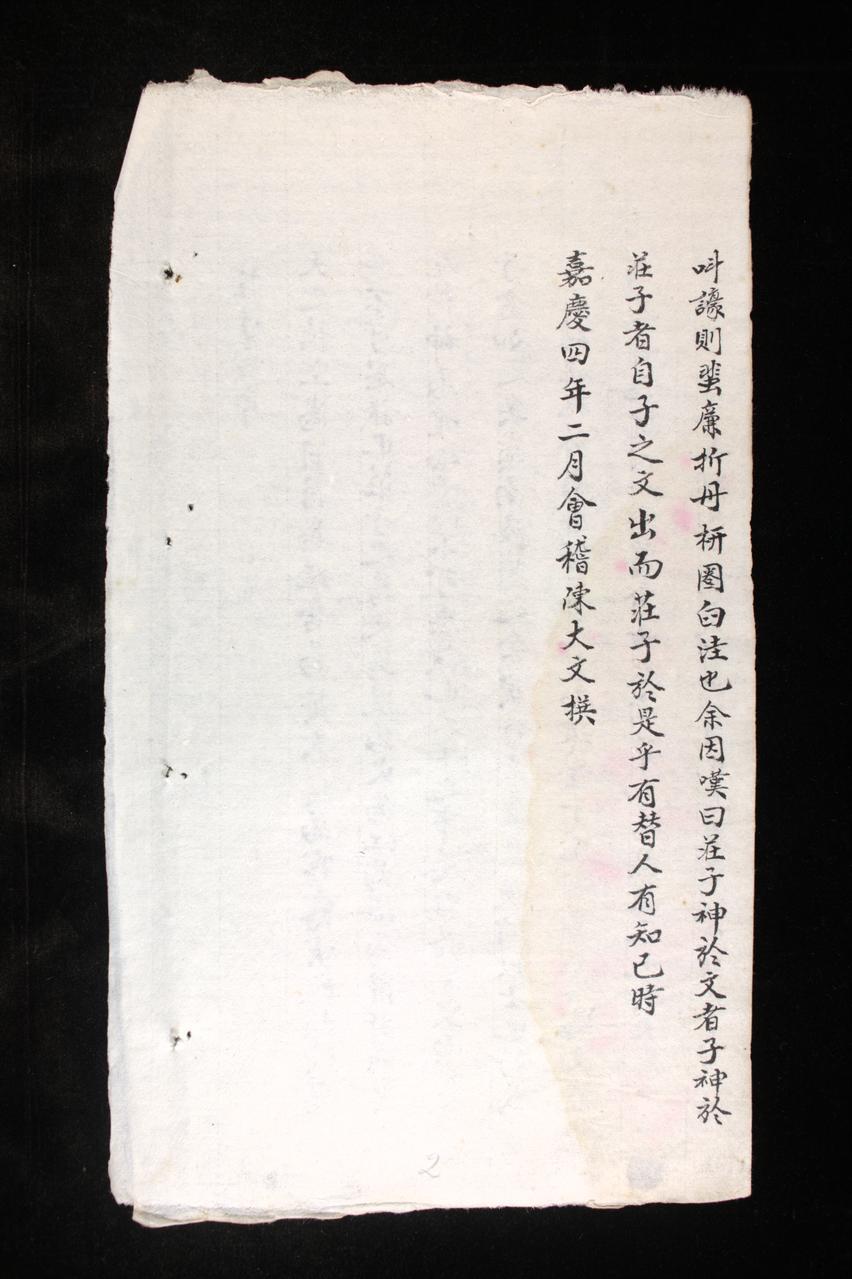 叫譹則蜚廉折丹枅圈臼洼也余因嘆曰莊子神於文者子神於
莊子者自子之文出而莊子於是乎有替人有知已時
嘉慶四年二月會稽陳大文撰
2